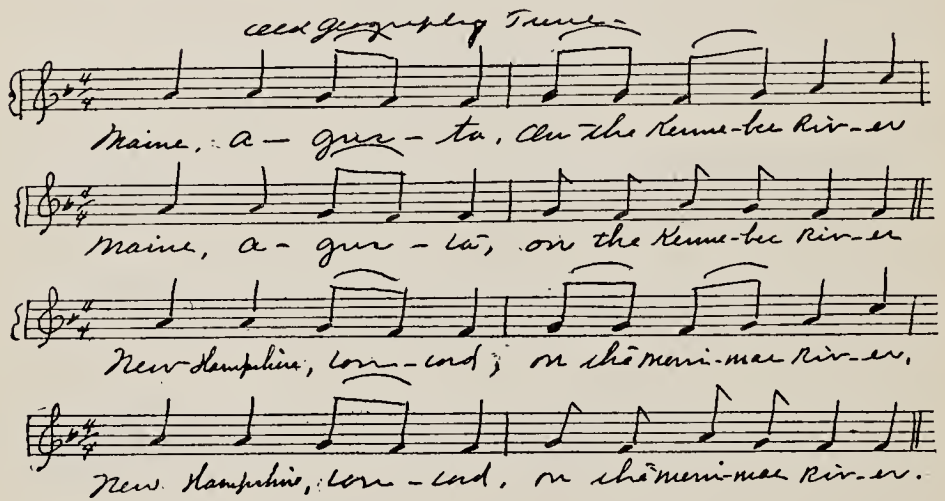 Old geography Tune-
Maine, a - gus - ta, On the Kenne-bec Riv-er
Maine, a - gus - ta, on the Kenne-bec Riv-er
New Hampshire, Con - cord; on the merri-mac Riv-er.
New Hampshire, Con - cord, on the merri-mac Riv-er.